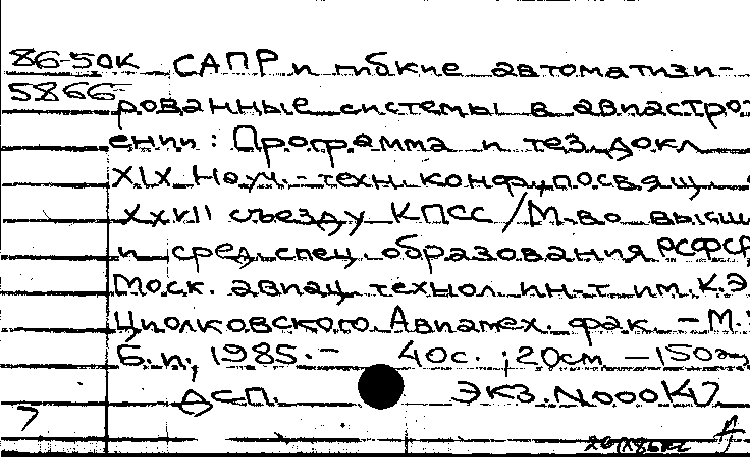 86-50К САПР и гибкие автоматизи-
5866 рованные системы в авиастро
ении : Программа и тез. докл
XIX Науч.-техн. конф., посвящ
XXVII съезду КПСС / М-во высш
и сред. спец. образования РСФСР
Моск. авиац. технол. ин-т им. К.Э.
Циолковского. Авиамех. фак. – М.:
Б.и., 1985. – 40с. ; 20см – 150
ДСП. Экз. N000К17
7